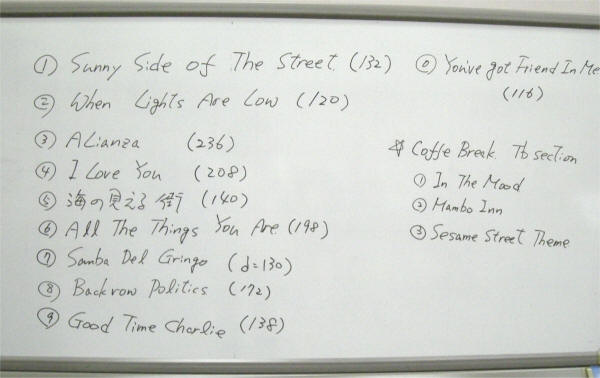 ① Sunny Side of The Street (132)
② When Lights Are Low (120)
③ ALianza (236)
④ I Love You (208)
⑤ 海の見える街 (140)
⑥ All The Things You Are (198)
⑦ Samba Del Gringo (d=130)
⑧ Backrow Politics (172)
⑨ Good Time Charlie (138)
⓪ You've got Friend In Me
(116)
Coffe Break Tb section
① In The Mood
② Mambo Inn
③ Sesame Street Theme